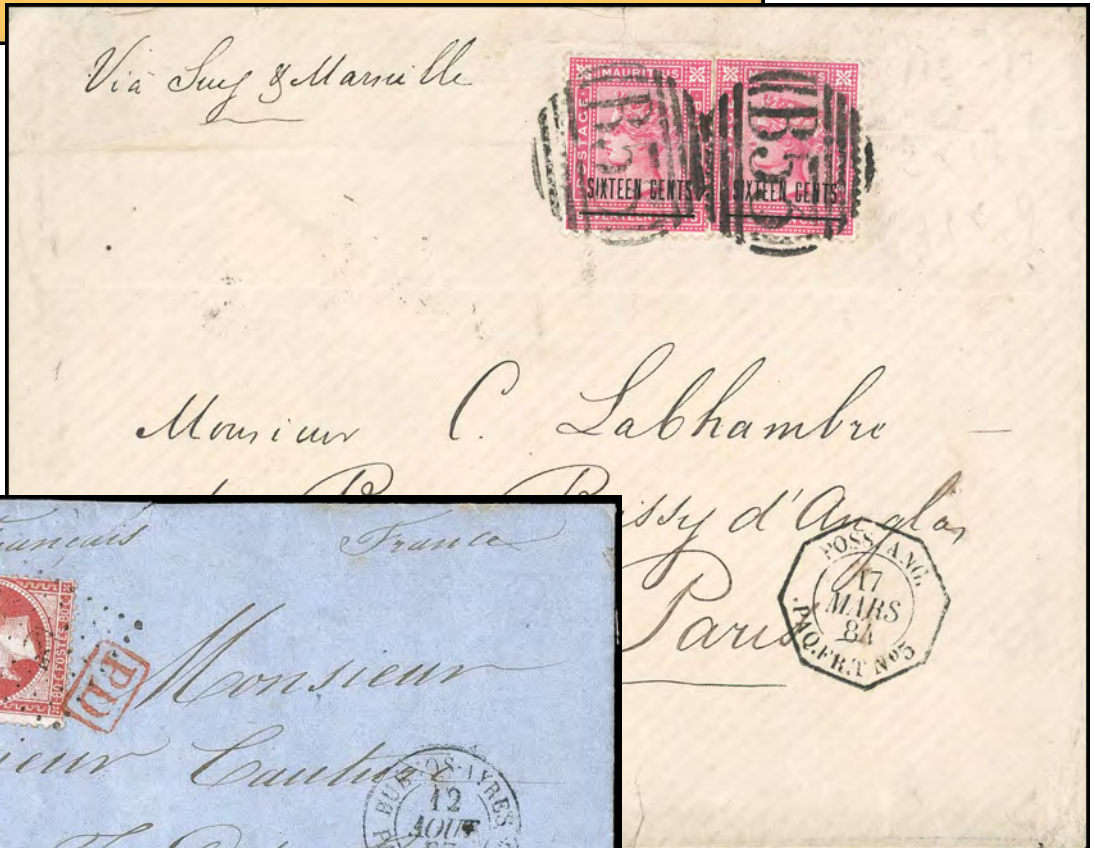 Via Suez & Marseille
MAURITIUS
POSTAGE
SIXTEEN CENTS
MAURITIUS
POSTAGE
SIXTEEN CENTS
B53
B53
Monsieur C. Labhambre
Boissy d'Anglas
Paris
POSS. ANG.
17
MARS
84
PAQ. FR. T Nº5
Français France
80 C POSTES 80 C
PD
Monsieur
Cautier
BUENOS-AYRES
12
AOUT